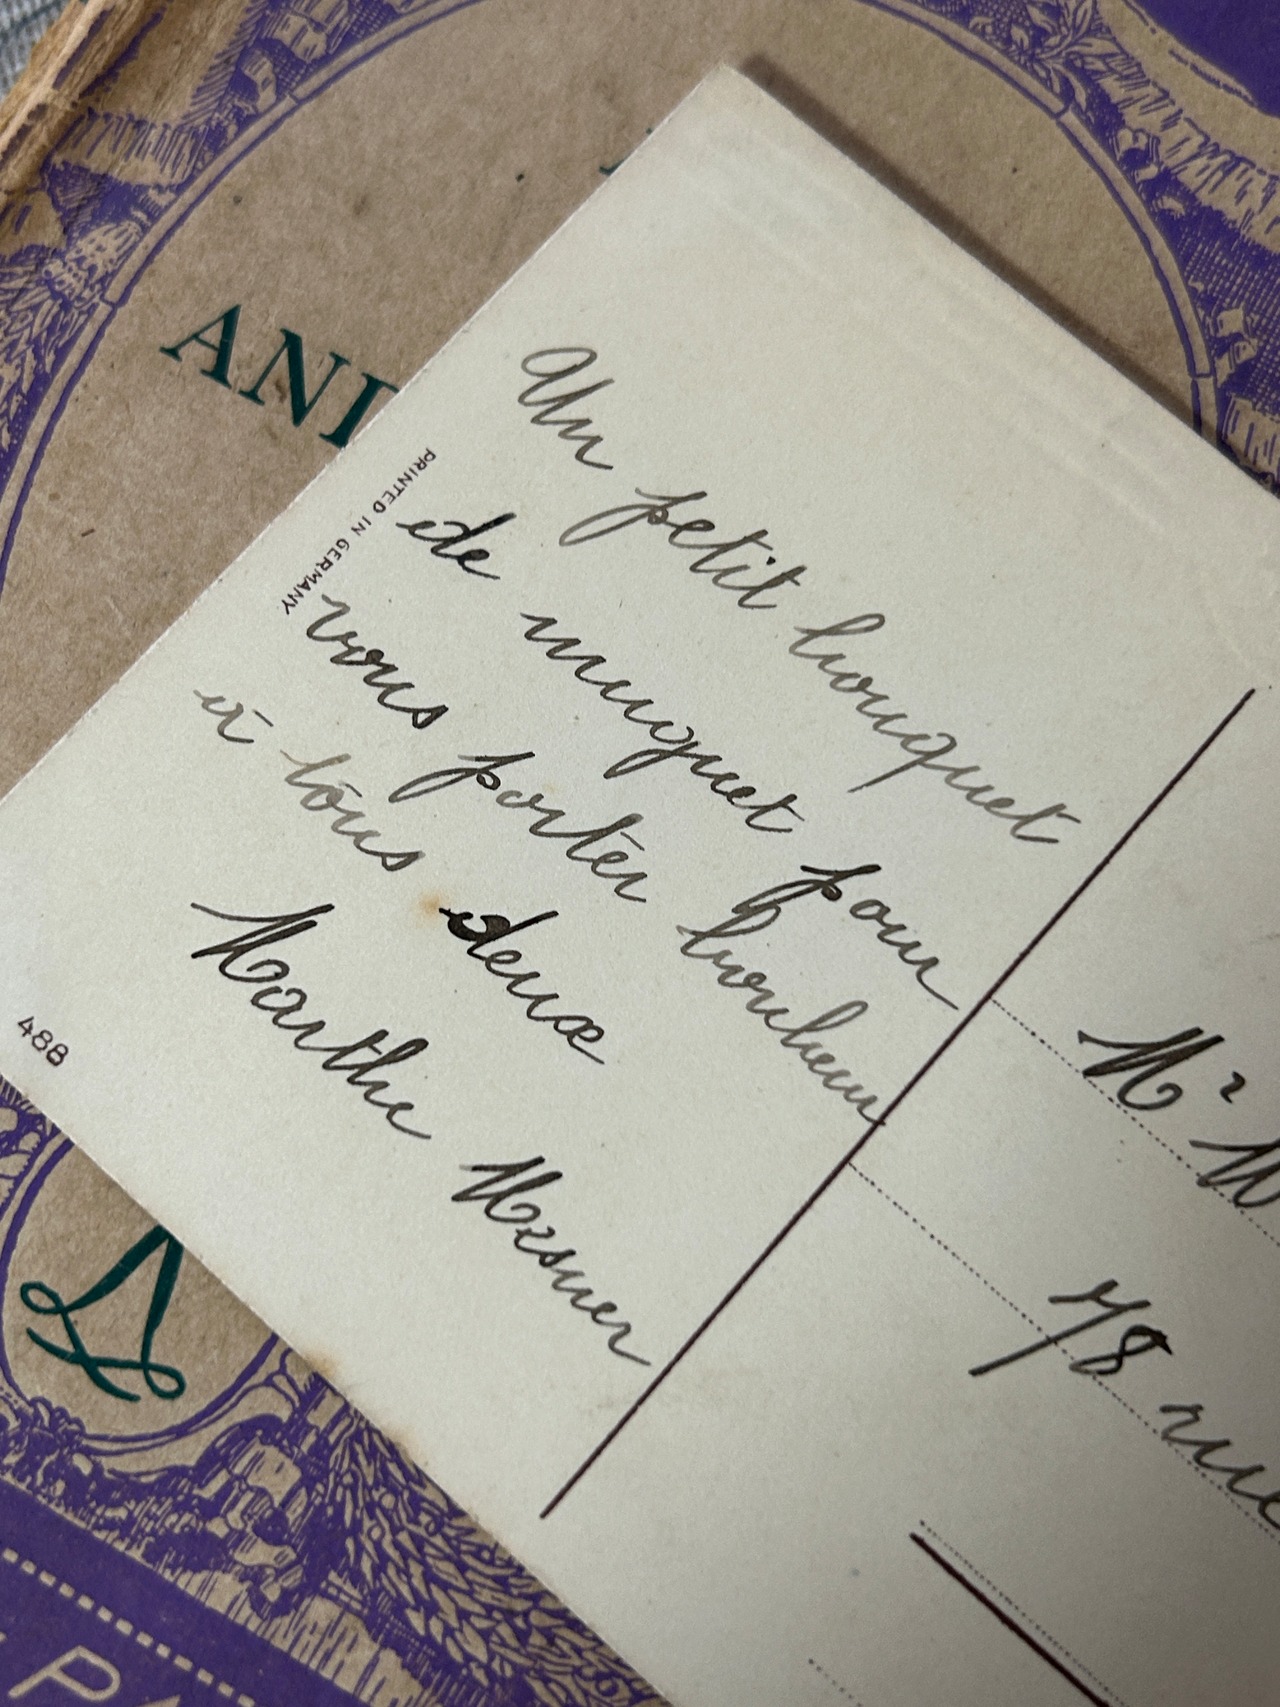 ANI
PRINTED IN GERMANY
Un petit bouquet
de muguet pour
vous porter bonheur
à tous deux
Marthe Mesner
488
Mr M
78 rue
PA